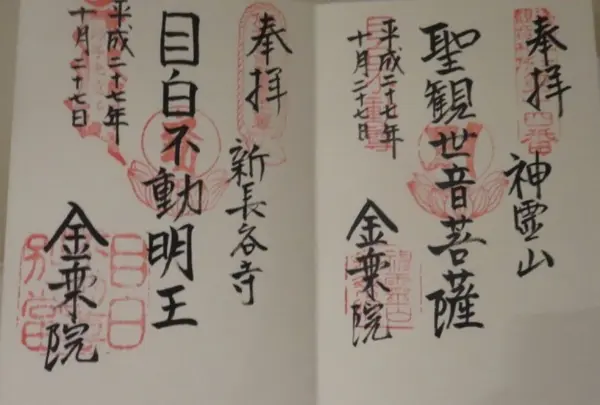 奉拝
神霊山
聖観世音菩薩
平成二十七年
十月二十七日
金乗院
奉拝
新長谷寺
目白不動明王
平成二十七年
十月二十七日
金乗院
目白
別當